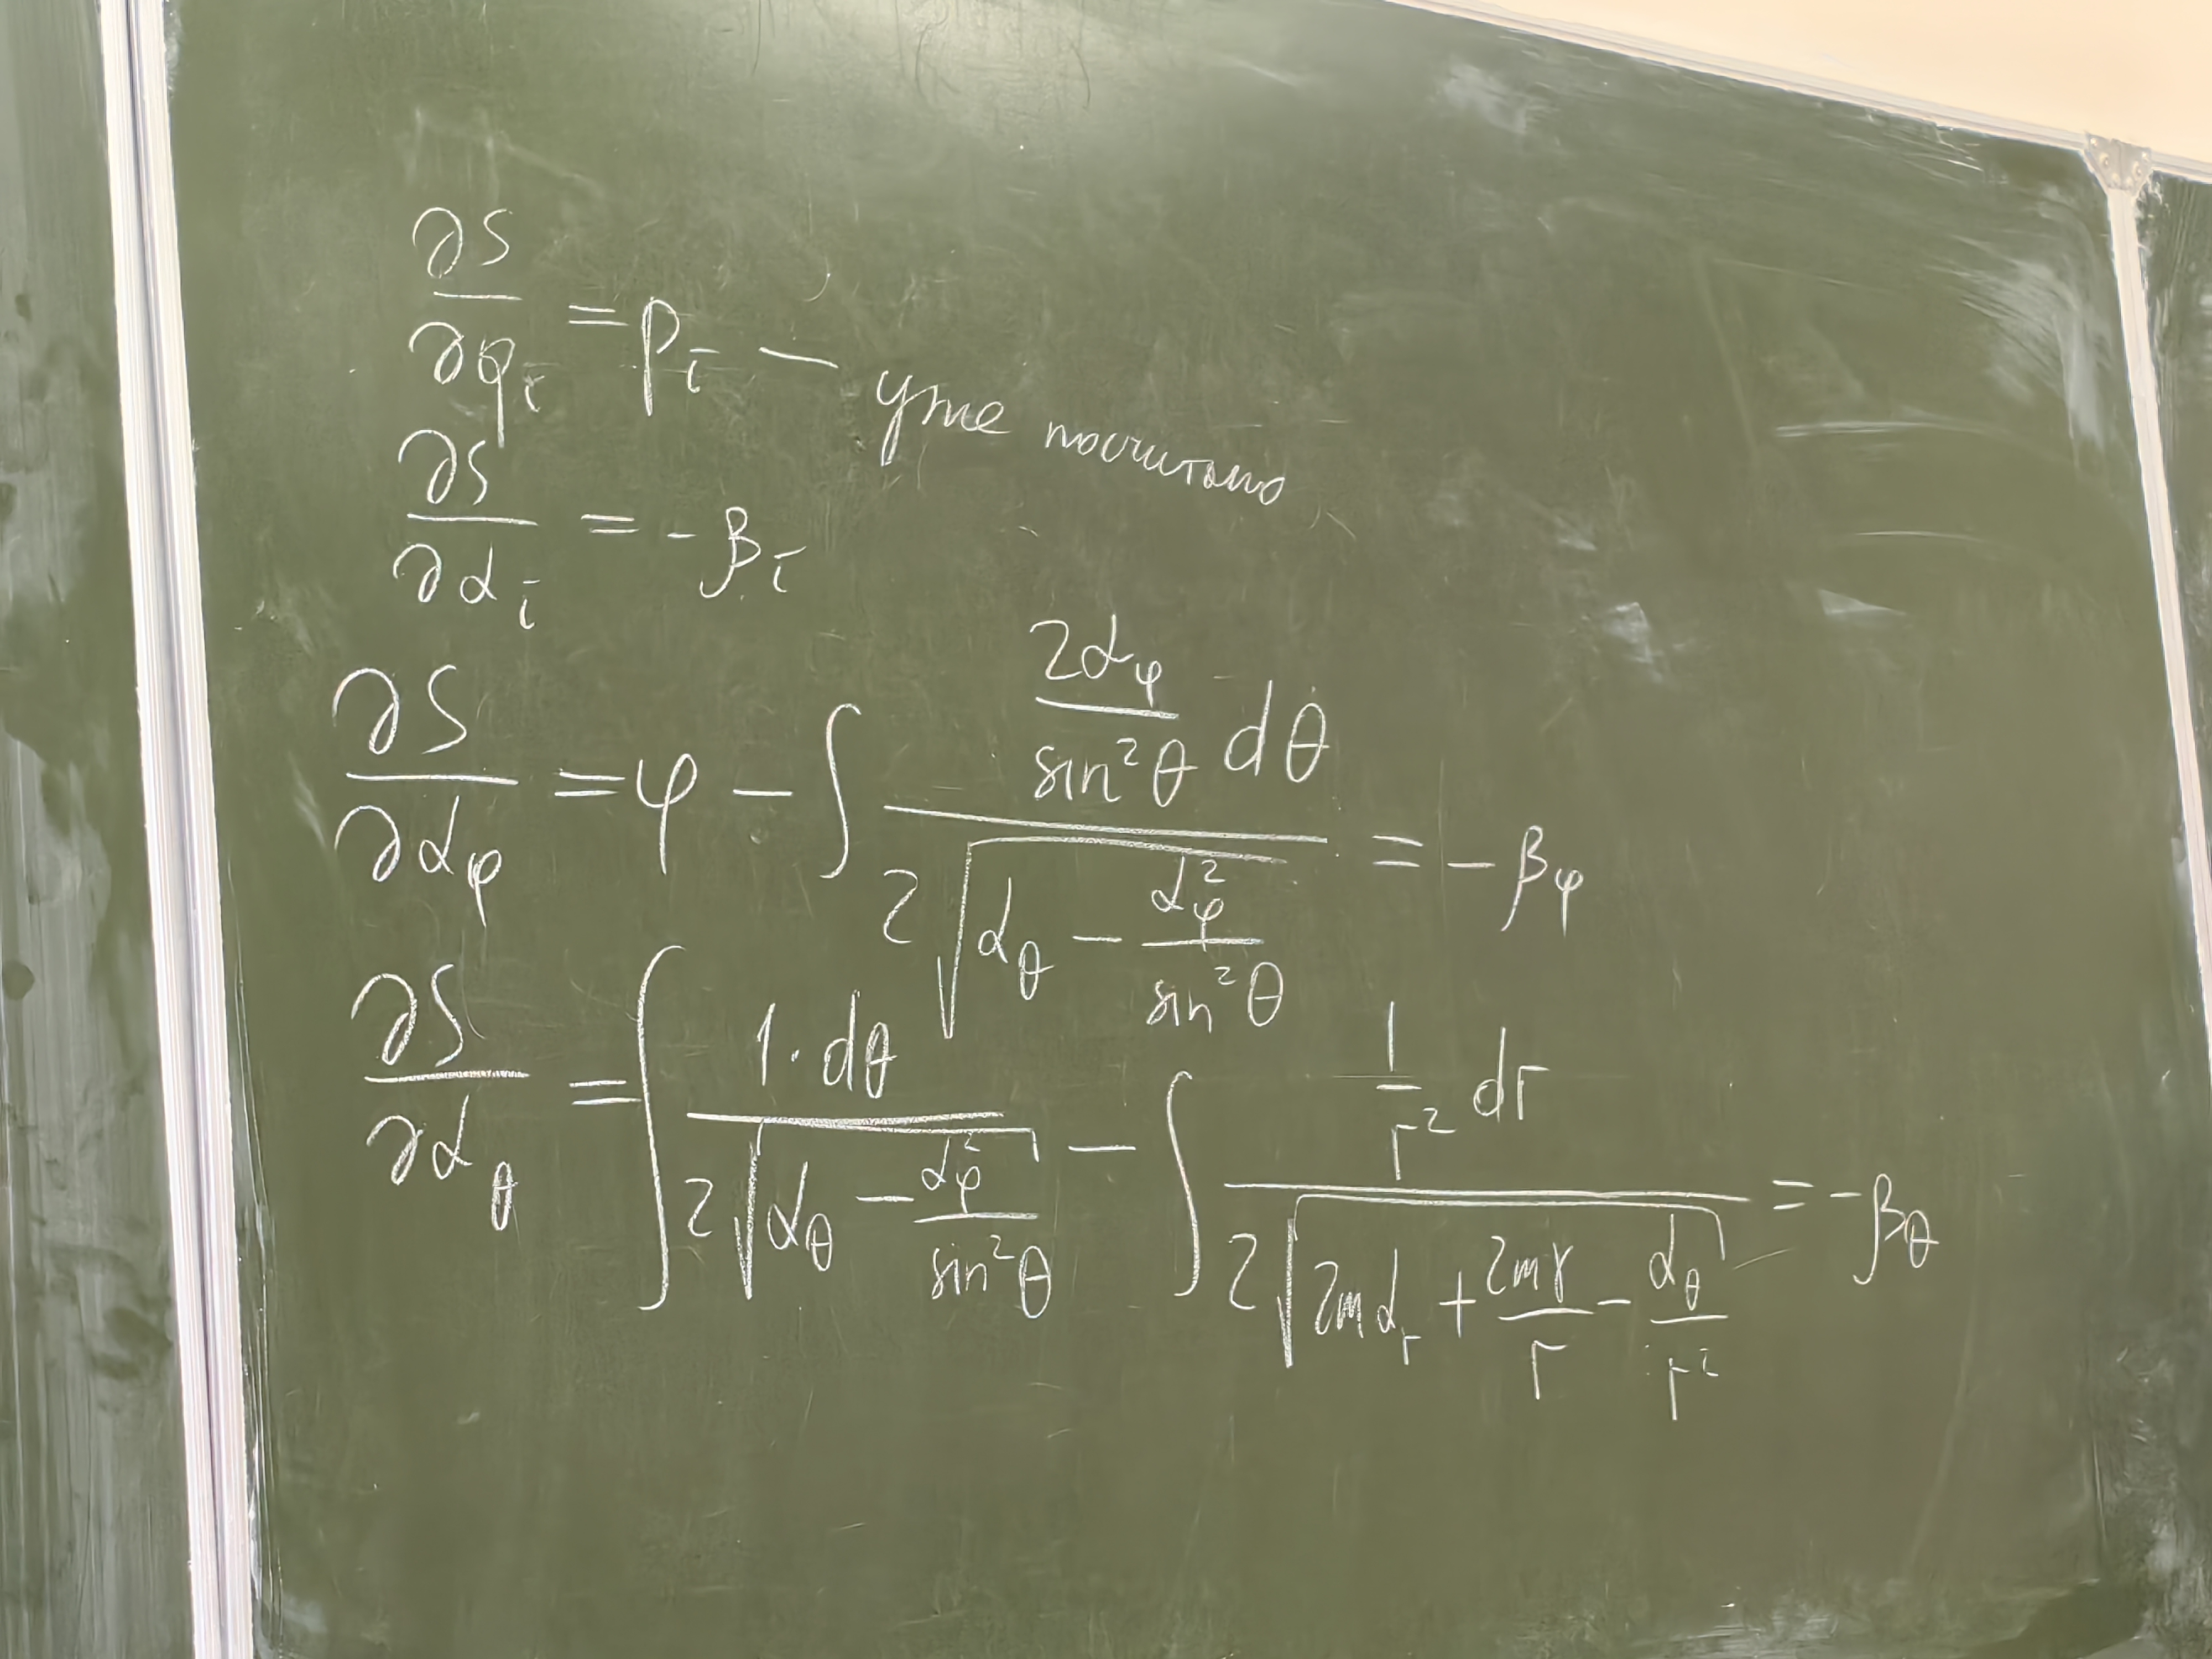 ∂S/∂q_i = p_i — уже посчитано
∂S/∂α_i = -β_i
∂S/∂α_φ = φ - ∫ (2α_φ/sin²θ dθ)/(2√(α_θ - α_φ²/sin²θ)) = -β_φ
∂S/∂α_θ = ∫ (1·dθ)/(2√(α_θ - α_φ²/sin²θ)) - ∫ (1/r² dr)/(2√(2mα_r + 2mγ/r - α_θ/r²)) = -β_θ